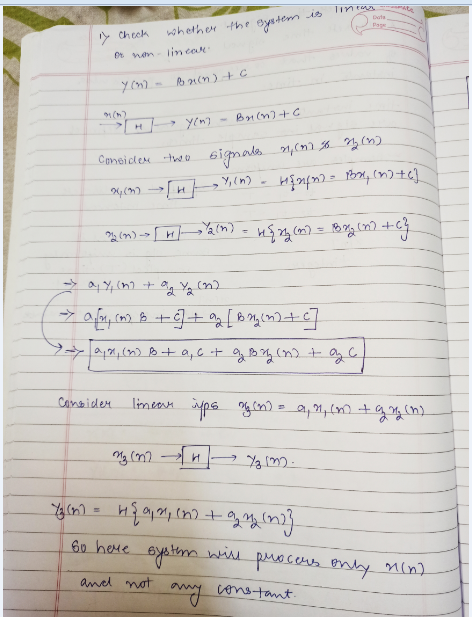 1) Check whether the system is linear
or non-linear.
Date
Page
Y(n) = Bx(n) + C
x(n) → [H] → Y(n) = Bx(n) + C
Consider two signals x₁(n) & x₂(n)
x₁(n) → [H] → Y₁(n) = H{x(n) = Bx₁(n) + C}
x₂(n) → [H] → Y₂(n) = H{x₂(n) = Bx₂(n) + C}
→ a₁Y₁(n) + a₂Y₂(n)
→ a₁[x₁(n) B + C] + a₂[Bx₂(n) + C]
→ a₁x₁(n) B + a₁C + a₂Bx₂(n) + a₂C
Consider linear i/ps x₃(n) = a₁x₁(n) + a₂x₂(n)
x₃(n) → [H] → Y₃(n).
Y₃(n) = H{a₁x₁(n) + a₂x₂(n)}
So here system will process only x(n)
and not any constant.